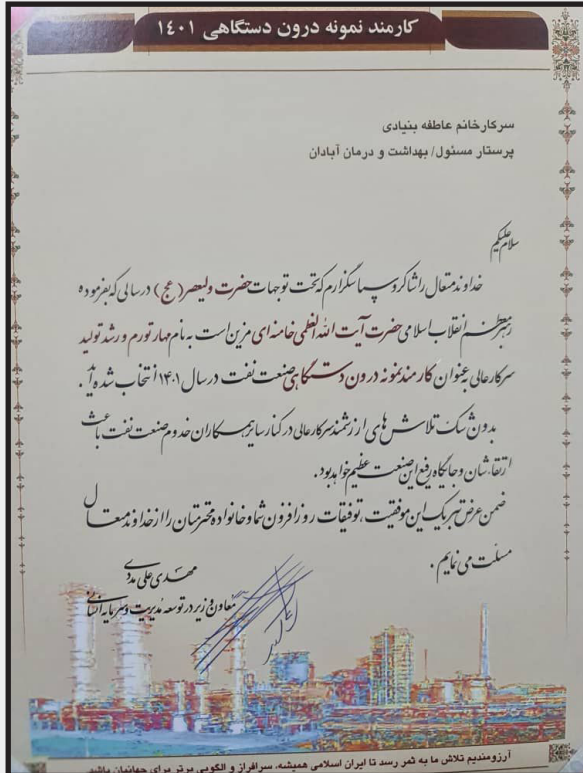 کارمند نمونه درون دستگاهی ۱۴۰۱
سرکارخانم عاطفه بنیادی
پرستار مسئول/ بهداشت و درمان آبادان
سلام علیکم
خداوند متعال را شاکر و سپاسگزارم که تحت توجهات حضرت ولیعصر (عج) در سالی که بفرموده
رهبر معظم انقلاب اسلامی حضرت آیت الله العظمی خامنه ای مزین است به نام مهار تورم و رشد تولید
سرکارعالی به عنوان کارمند نمونه درون دستگاهی صنعت نفت در سال ۱۴۰۱ انتخاب شده اید.
بدون شک تلاش های ارزشمند سرکارعالی در کنار سایر همکاران خدوم صنعت نفت باعث
ارتقاء شان و جایگاه رفیع این صنعت عظیم خواهد بود.
ضمن عرض تبریک این موفقیت، توفیقات روز افزون شما و خانواده محترمتان را از خداوند متعال
مسئلت می نمایم.
مهدی علی مددی
معاون وزیر در توسعه مدیریت و سرمایه انسانی
آرزومندیم تلاش ما به ثمر رسد تا ایران اسلامی همیشه، سرافراز و الگویی برتر برای جهانیان باشد